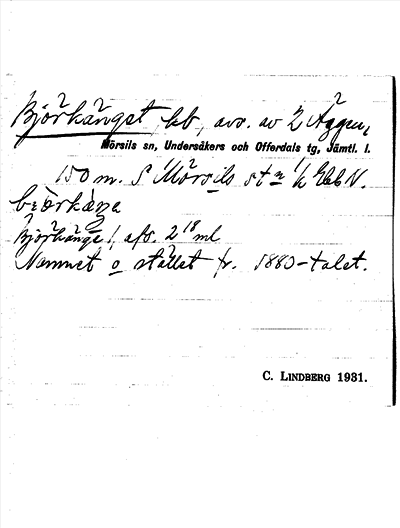 Björkänget, lhb, avs. av 2 Äggen,
Mörsils sn, Undersåkers och Offerdals tg, Jämtl. l.
150 m. S Mörsils st n
björkäŋe
Björkänge l, afs. 2 18 ml
Namnet o stället fr. 1880-talet.
C. LINDBERG 1931.